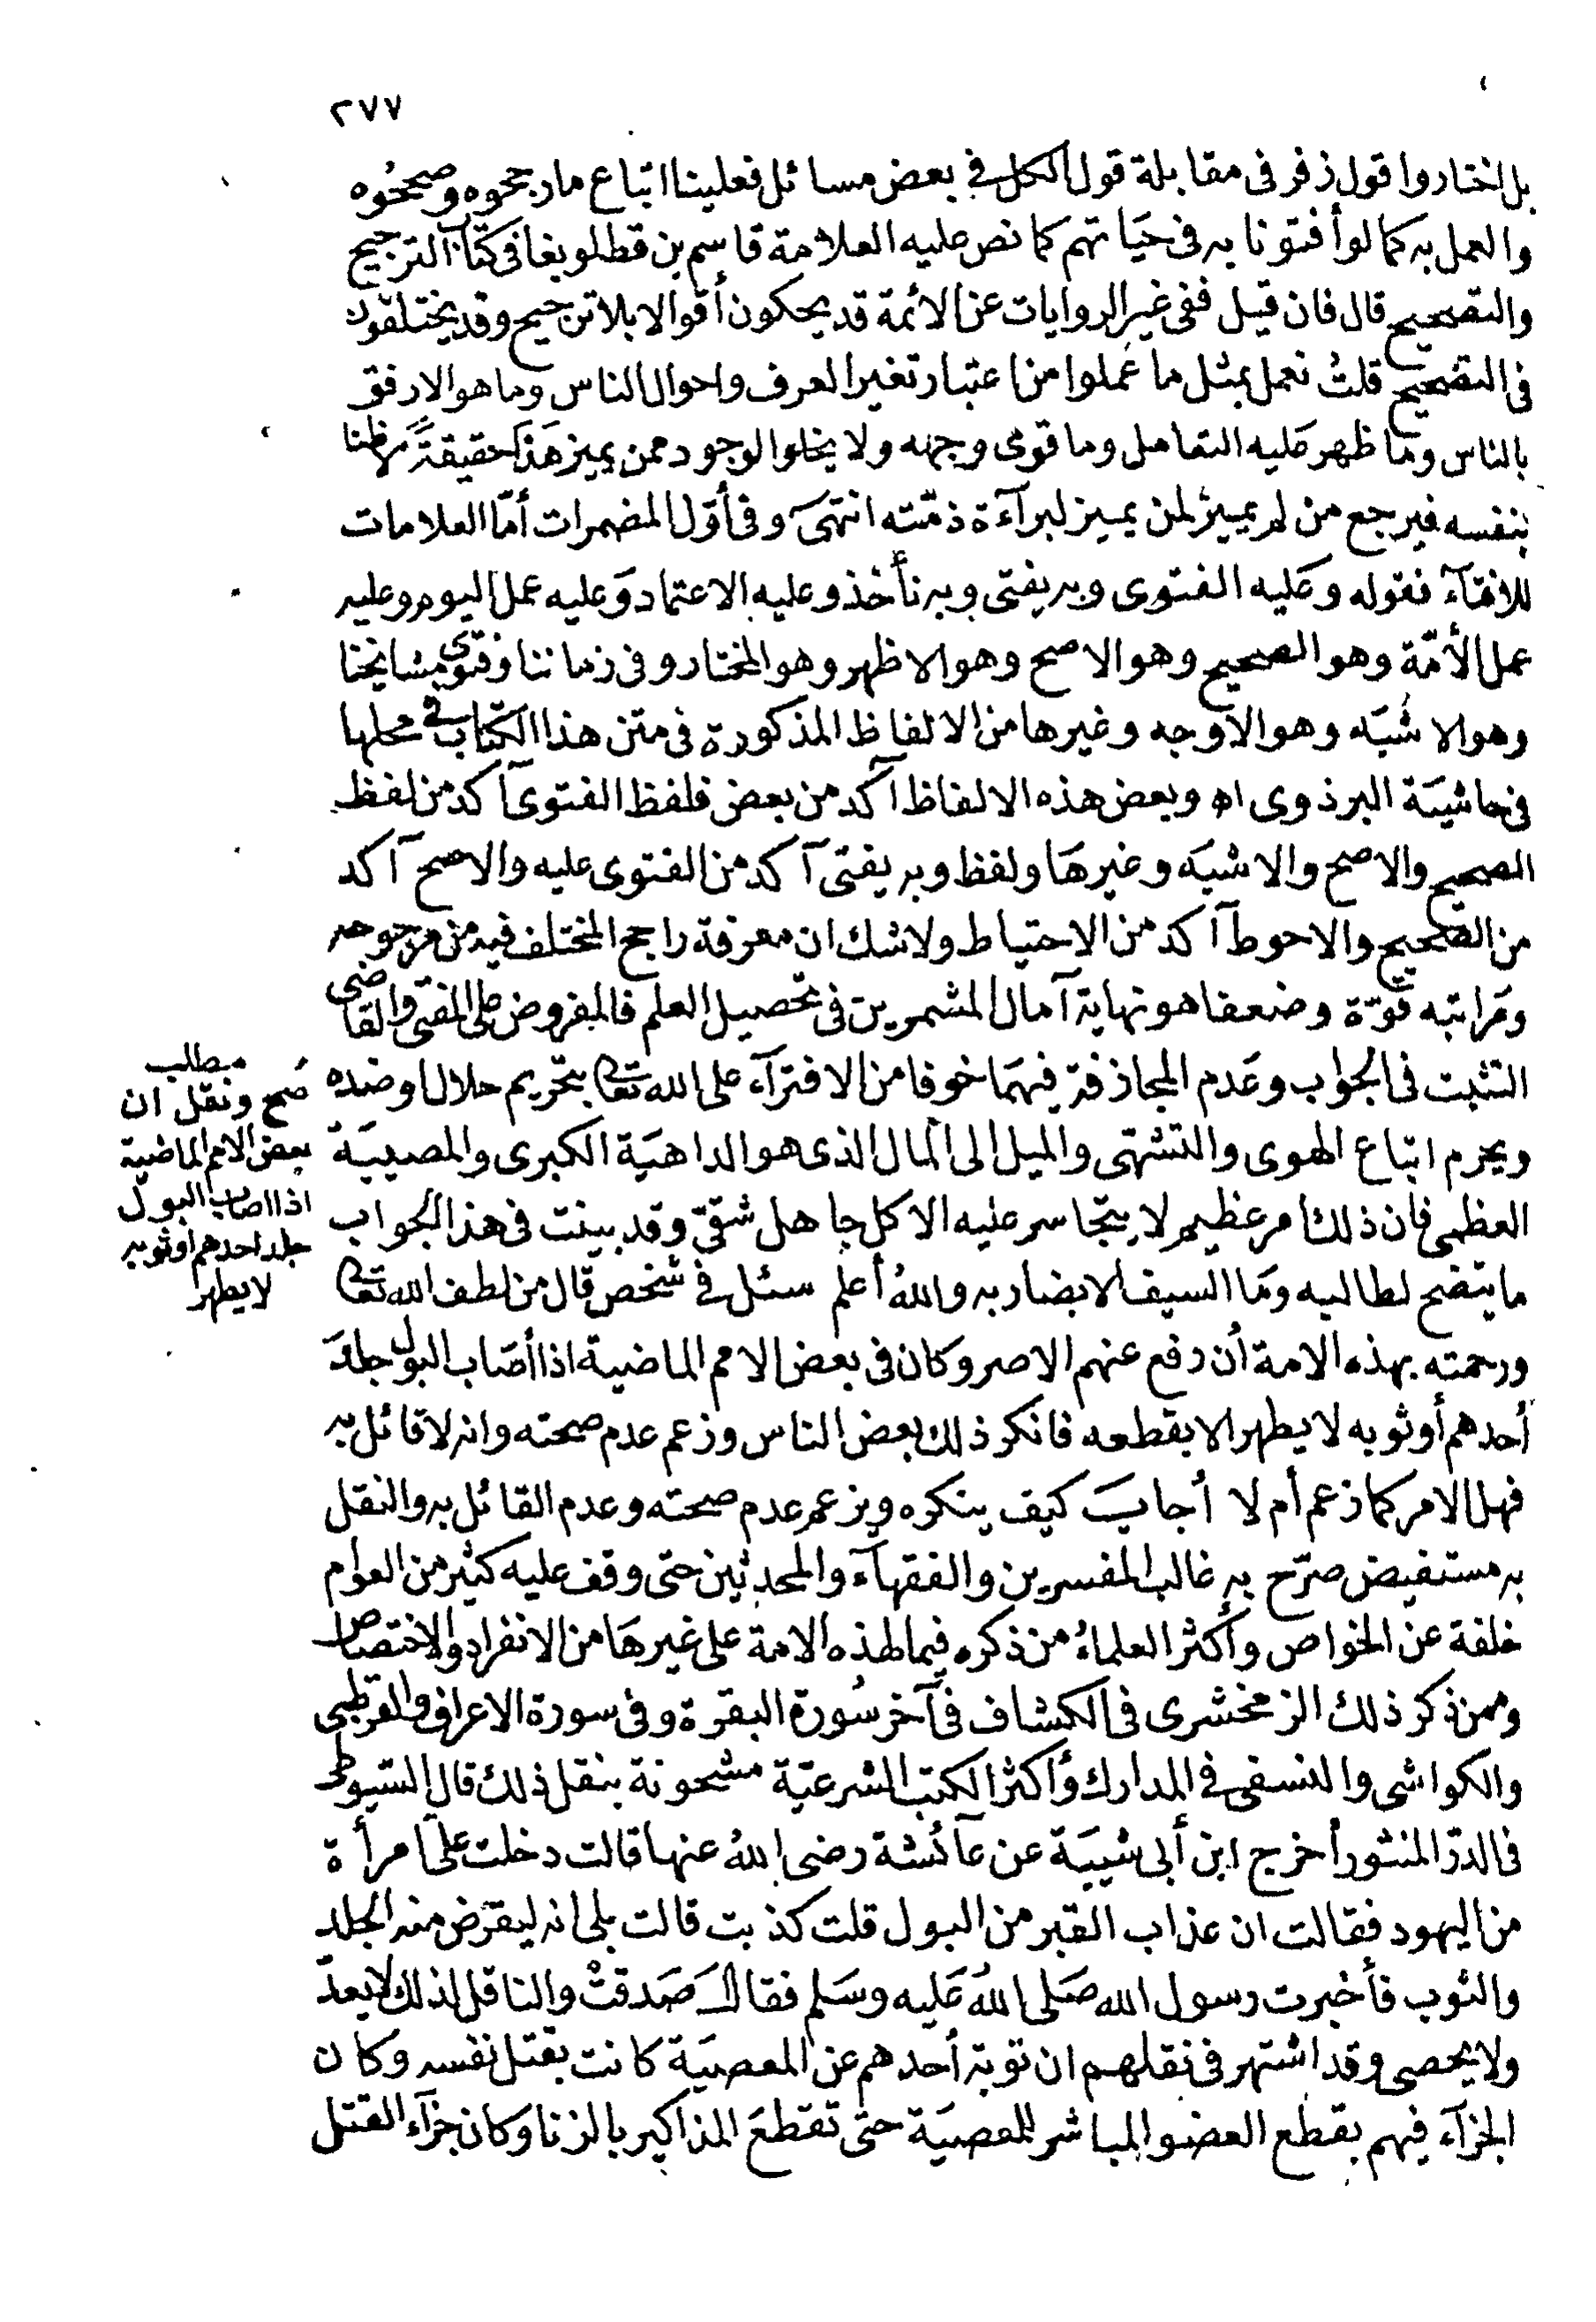 ٢٧٧
بل اختاروا قول زفر فى مقابلة قول الكل فى بعض مسائل فعلينا اتباع ما رجحوه وصححُوه
والعمل به كما لو أفتونا به فى حيَاتهم كما نص عليه العلامة قاسم بن قطلوبغا فى كتاب الترجيح
والتصحيح قال فان قيل ففى غير الروايات عن الائمة قد يحكون أقوالا بلا ترجيح وقد يختلفون
فى التصحيح قلتُ نعمل بمثل ما عَملوا من اعتبار تغير العرف واحوال الناس وما هو الارفق
بالناس وما ظهر عَليه التعامل وما قوى وجهه ولا يخلوا الوجود ممن يميز هَذا حقيقةً لا ظنا
بنفسه فيرجع من لم يميز لمن يميز لبرآءة ذمّته انتهىَ وفى أوّل المضمرات أمّا العلامات
للافتآء فقوله وعَليه الفتوى وبه يفتى وبه نأخذ وعليه الاعتماد وَعليه عمل اليوم وعليه
عمل الأمّة وهو الصحيح وهو الاصح وهو الاظهر وهو المختار وفى زماننا وفتوى مشايخنا
وهو الاشبَه وهو الاوجه وغيرها من الالفاظ المذكورة فى متن هذا الكتاب فى محلها
فى حاشيَة البزدوى اه وبعض هذه الالفاظ آكد من بعض فلفظ الفتوى آكد من لفظ
الصحيح والاصح والاشبَه وغيرهَا ولفظ وبه يفتى آكد من الفتوى عليه والاصح آكد
من الصحيح والاحوط آكد من الاحتياط ولا شك ان معرفة راجح المختلف فيه من مرجوحه
ومَراتبه قوّة وضعفا هو نهاية آمال المشمرين فى تحصيل العلم فالمفروض على المفتى والقاضى
التثبت فى الجواب وعَدم المجازفة فيهمَا خوفا من الافترآء على الله تعَالى بتحريم حلال او ضده
ويحرم اتباع الهوى والتشهّى والميل الى المال الذى هو الداهيَة الكبرى والمصيبَة
العظمى فان ذلك امر عظيم لا يتجاسر عليه الا كل جاهل شقىّ وقد بينت فى هذا الجواب
ما يتضح لطالبه ومَا السيف الا بضاربه واللهُ أعلم سئل فى شخص قال من لطف الله تعَالى
ورحمته بهذه الامة أن رفع عنهم الاصر وكان فى بعض الامم الماضية اذا أصَاب البول جلدَ
أحدهم أو ثوبه لا يطهر الا بقطعه فانكر ذلك بعض الناس وزعم عدم صحته وانه لا قائل به
فهل الامر كما زعم أم لا أجابَ كيف ينكره ويزعم عدم صحته وعدم القائل به والنقل
به مستفيض صرّح به غالب المفسرين والفقهآء والمحدثين حتى وقف عليه كثير من العوام
خلفة عن الخواص وأكثر العلماءُ من ذكره فيما لهذه الامة على غيرهَا من الانفراد والاختصاص
وممن ذكر ذلك الزمخشرى فى الكشاف فى آخر سُورة البقرة وفى سورة الاعراف والقرطبى
والكواشى والنسفى فى المدارك وأكثر الكتب الشرعيّة مشحونة بنقل ذلك قال السّيوطى
فى الدرّ المنثور أخرج ابن أبى شيبَة عن عآئشة رضى اللهُ عنها قالت دخلت علىّ امرأة
من اليهود فقالت ان عذاب القبر من البول قلت كذبت قالت بلى انه ليقرَض منه الجلد
والثوب فأخبرت رسول الله صَلى اللهُ عَليه وسَلم فقالَ صَدقتْ والناقل لذلك لا يعدّ
ولا يحصى وقد اشتهر فى نقلهم ان توبة أحدهم عن المعصيَة كانت بقتل نفسه وكان
الجزآء فيهم بقطع العضو المباشر للمعصيَة حتى تقطعَ المذاكير بالزنا وكان جزآء القتل
مطلب
صح ونقل ان
بعض الامم الماضية
اذا اصاب البول
جلد احدهم أو ثوبه
لا يطهر